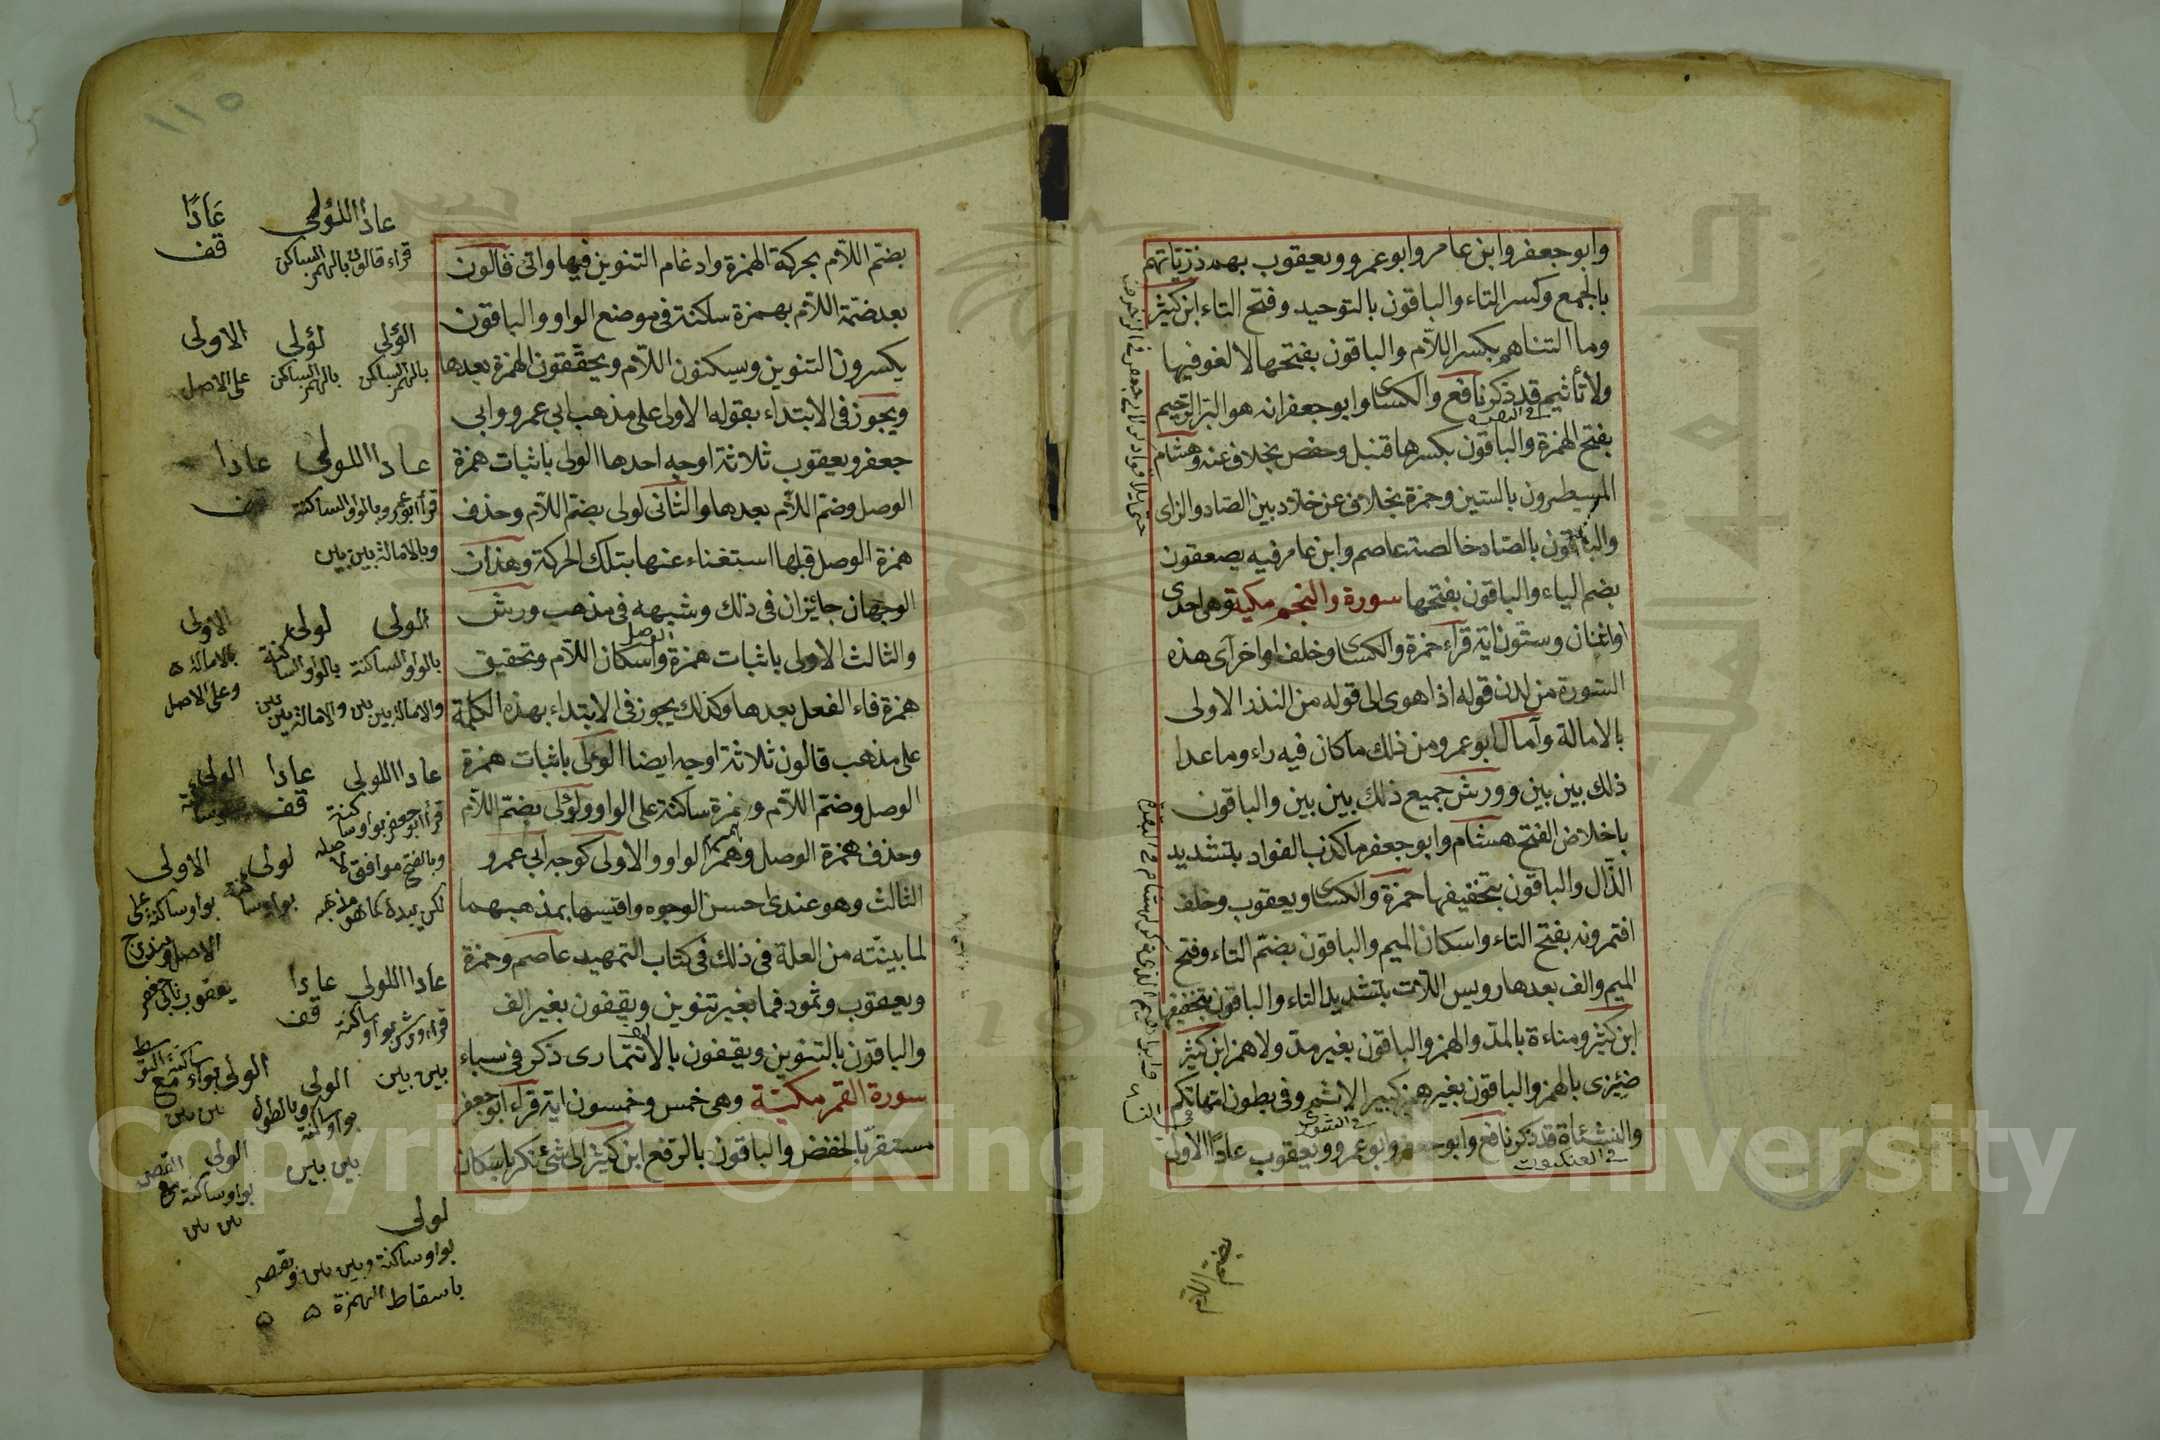 وابو جعفر وابن عامر وابو عمرو ويعقوب بهم ذرّيّاتهم
بالجمع وكسر التاء والباقون بالتوحيد وفتح التاء ابن كثير
وما التناهم بكسر اللّام والباقون بفتحها لا لغو فيها
ولا تأثيم قد ذكر نافع والكسائى وابو جعفر انه هو البرّ الرّحيم
فى البقرة
بفتح الهمزة والباقون بكسرها قنبل وحفص بخلاف عنه وهشام
المسيطرون بالسّين وحمزة بخلاف عن خلّاد بين الصّاد والزاى
والباقون بالصّاد خالصة عاصم وابن عامر فيه يصعقون
بضم الياء والباقون بفتحها سورة والنجم مكية وهى احدى
او اثنان وستّون اية قرأ حمزة والكسائى وخلف اواخر آى هذه
السّورة من لدن قوله اذا هوى الى قوله من النذر الاولى
بالامالة وآمال ابو عمرو من ذلك ما كان فيه راء وما عدا
ذلك بين بين وورش جميع ذلك بين بين والباقون
باخلاص الفتح هشام وابو جعفر ما كذب الفواد بتشديد
الذّال والباقون بتخفيفها حمزة والكسائى ويعقوب وخلف
افتمرونه بفتح التاء واسكان الميم والباقون بضمّ التاء وفتح
الميم والف بعدها رويس اللّات بتشديد التاء والباقون بتخفيفها
ابن كثير ومناءة بالمدّ والهمز والباقون بغير مدّ ولا همز ابن كثير
ضئزى بالهمز والباقون بغير همز كبير الاثم وفى بطون امّهاتكم
فى الشورى
والنشئاة قد ذكر نافع وابو جعفر وابو عمرو ويعقوب عادًا الاولى
فى العنكبوت
بضمّ اللّام
بضمّ اللّام بحركة الهمزة وادغام التنوين فيها واتى قالون
بعد ضمّة اللّام بهمزة ساكنة فى موضع الواو والباقون
يكسرون التنوين ويسكنون اللّام ويحقّقون الهمزة بعدها
ويجوز فى الابتداء بقوله الاولى على مذهب ابى عمرو وابى
جعفر ويعقوب ثلاثة اوجه احدها الولى باثبات همزة
الوصل وضمّ اللّام بعدها والثّانى لولى بضمّ اللّام وحذف
همزة الوصل قبلها استغناء عنها بتلك الحركة وهذان
الوجهان جائزان فى ذلك وشبهه فى مذهب ورش
والثالث الاولى باثبات همزة الوصل واسكان اللّام وتحقيق
همزة فاء الفعل بعدها وكذلك يجوز فى الابتداء بهذه الكلمة
على مذهب قالون ثلاثة اوجه ايضا الوءلى باثبات همزة
الوصل وضمّ اللّام وهمزة ساكنة على الواو ولؤلى بضمّ اللّام
وحذف همزة الوصل وهمز الواو والاولى كوجه ابى عمرو
الثالث وهو عندى احسن الوجوه واقيسها بمذهبهما
لما بينّته من العلة فى ذلك فى كتاب التمهيد عاصم وحمزة
ويعقوب وثمود فما بغير تنوين ويقفون بغير الف
والباقون بالتنوين ويقفون بالالف تتمارى ذكر فى سباء
سورة القمر مكيّة وهى خمس وخمسون اية قرأ ابو جعفر
مستقرّ بالخفض والباقون بالرّفع ابن كثير الى شئ نكر باسكان
١١٥
عاذا اللؤلى عَادًا
قراء قالون بالهمز الساكن قف
الؤلى لؤلى الاولى
بالهمز الساكن بالهمز الساكن على الاصل
عادا اللولى عادا
قرأ ابو عمرو بالواو الساكنة
وبالامالة بين بين
الولى لولى الاولى
بالواو الساكنة بالواو الساكنة بالامالة
والامالة بين بين والامالة بين بين وعلى الاصل
عادا اللولى عادا الولى
قرأ ابو جعفر بواو ساكنة قف
وبالفتح موافق
لولى الاولى
بواو ساكنة بواو ساكنة على
الاصل
عادا اللولى عادا
قراء ورش بواو ساكنة قف
بين بين
الولى الولى
بواو ساكنة وبالطول
بين بين
الولى
بواو ساكنة مع القصر
بين بين
لولى
بواو ساكنة وبين بين وبقصر
باسقاط الهمزة
Copyright © King Saud University